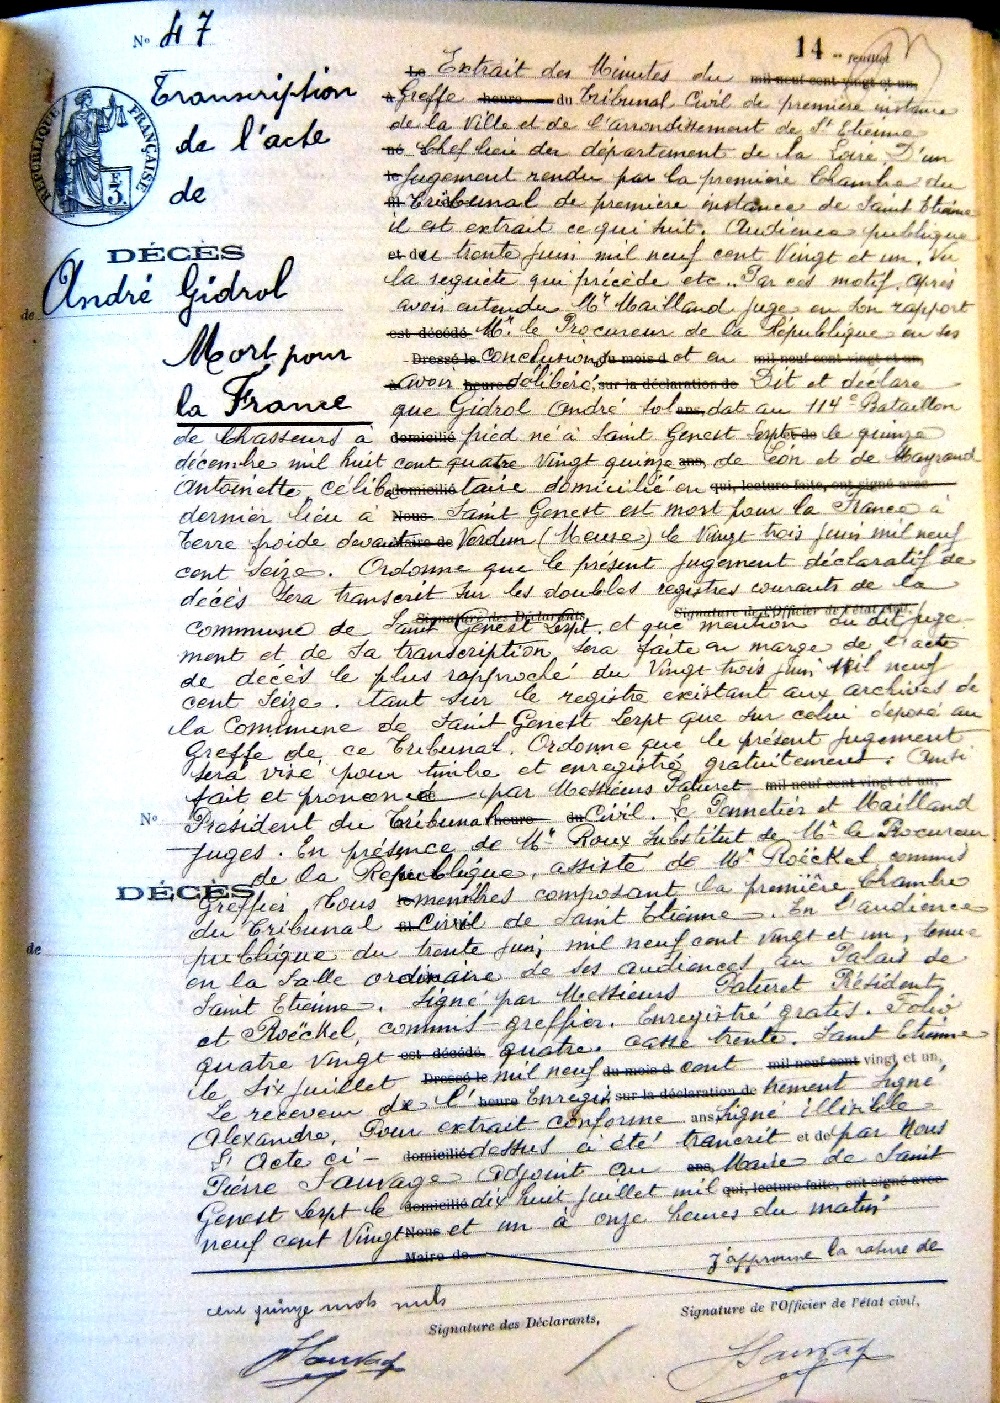 N° 47
14 -- feuillet
Transcription
de l'acte
de
RÉPUBLIQUE FRANÇAISE
3 F
DÉCÈS
de André Gidrol
Mort pour
la France
Le Extrait des Minutes du mil neuf cent vingt et un,
à Greffe heure du Tribunal Civil de première instance
de la Ville et de l'arrondissement de St Etienne
né Chef lieu du département de la Loire D'un
le Jugement rendu par la première Chambre du
Tribunal de première instance de Saint Etienne
il est extrait ce qui suit. Audience publique
et de du trente Juin mil neuf cent Vingt et un. Vu
la requête qui précède etc.. Par ces motif, après
avoir entendu Mr Mailland Juge en son rapport
est décédé Mr le Procureur de la République en ses
Dressé le conclusions du mois d et en mil neuf cent vingt et un,
à avoir heure délibéré, sur la déclaration de Dit et déclare
que Gidrol André Sol ans, dat au 114e Bataillon
de Chasseurs à domicilié pied né à Saint Genest Lerpt de le quinze
décembre mil huit cent quatre Vingt quinze ans, de Léon et de Mayrand
Antoinette, célib domicilié taire domicilié en qui, lecture faite, ont signé avec
dernier lieu à Nous Saint Genest est mort pour la France à
Terre froide devant Maire de Verdun (Meuse) le Vingt trois Juin mil neuf
cent Seize. Ordonne que le présent Jugement déclaratif de
décès Sera transcrit Sur les doubles registres courants de la
Signature des Déclarants, Signature de l'Officier de l'état civil,
commune de Saint Genest Lerpt, et que mention du dit juge-
ment et de Sa transcription, Sera faite en marge de l'acte
de décès le plus rapproché du Vingt trois Juin Mil neuf
cent Seize. tant Sur le registre existant aux archives de
la Commune de Saint Genest Lerpt que Sur celui déposé au
Greffe de ce Tribunal. Ordonne que le présent Jugement
Sera visé pour timbre et enregistré gratuitement. Ainsi
fait et prononcé par Messieurs Paturet mil neuf cent vingt et un,
N° Président du Tribunal heure du Civil. Le Pannetier et Mailland
Juges. En présence de Mr Roux Substitut de Mr le Procureur
de la République, assisté de Mr Roëckel, commis
DÉCÈS
Greffier, Tous le membres composant la première Chambre
du Tribunal Civil de Saint Etienne. En l'audience
de
publique du trente Juin mil neuf cent vingt et un, tenue
en la Salle ordinaire de Ses audiences au Palais de
Saint Etienne. Signé par Messieurs Paturet Président
et Roëckel, commis-greffier. Enregistré gratis. Folio
quatre Vingt est décédé quatre. case trente. Saint Etienne
le Six Juillet Dressé le mil neuf du mois d cent mil neuf cent vingt et un,
Le receveur de l' heure Enregis sur la déclaration de trement Signé
Alexandre, Pour extrait conforme ans, Signé illisible
L' Acte ci- domicilié dessus a été trancrit et de par Nous
Pierre Sauvage Adjoint au ans, Maire de Saint
Genest Lerpt le domicilié dix huit Juillet mil qui, lecture faite, ont signé avec
neuf cent Vingt Nous et un à onze heures du matin
Maire de J'approuve la rature de
cent quinze mots nuls
Signature des Déclarants, Signature de l'Officier de l'état civil,
Sauvage Sauvage